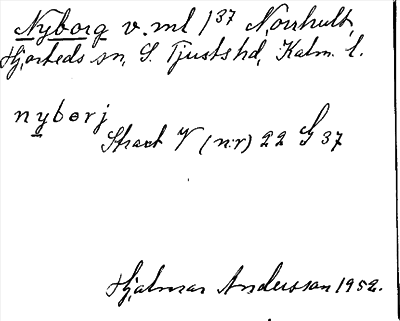 Nyborg v. ml 1³⁷ Norrhult,
Hjorteds sn, S. Tjusts hd, Kalm. l.
nyborj
Straxt V (nr) 22 G 37
Hjalmar Andersson 1952.